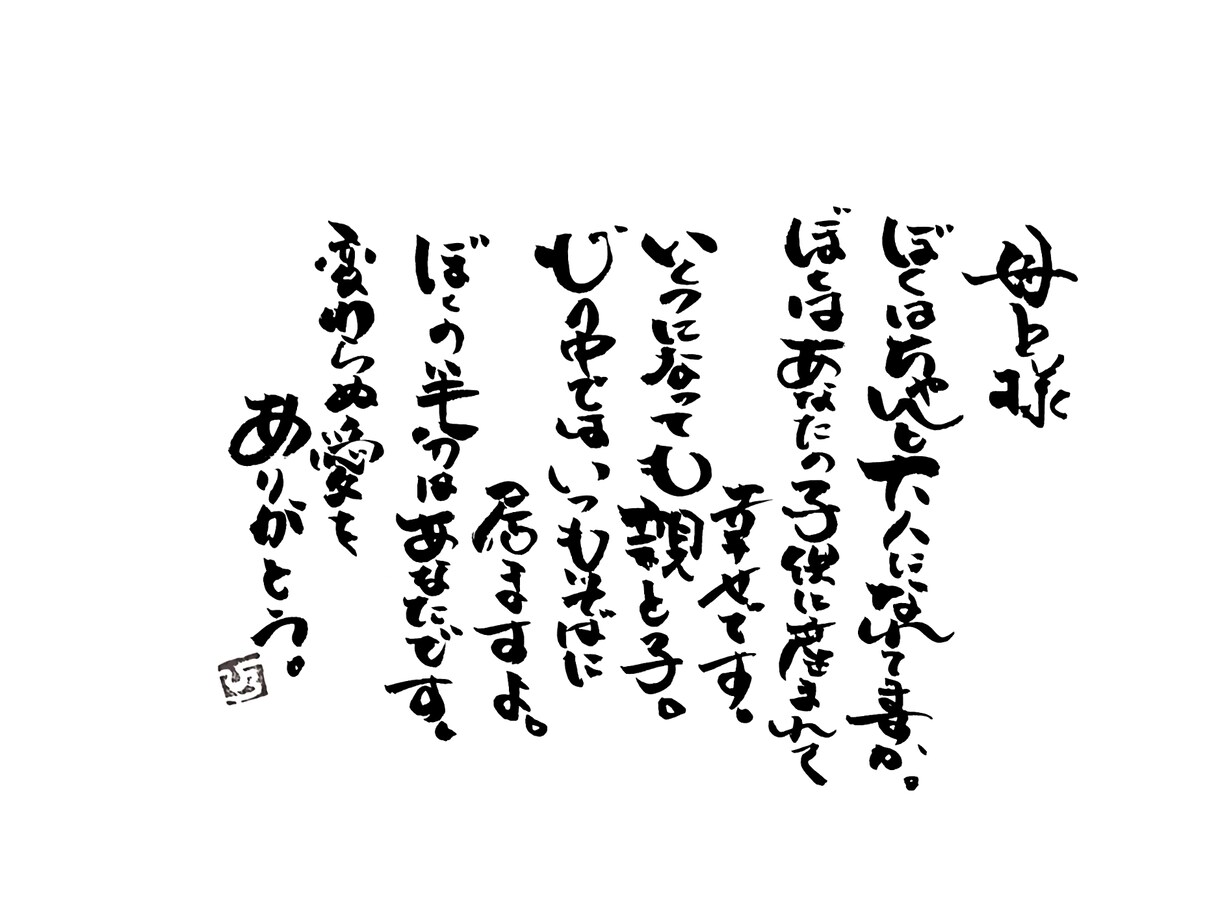 母上様
ぼくはちゃんと大人になれてますか。
ぼくはあなたの子供に産まれて
幸せです。
いくつになっても親と子。
心の中ではいつもそばに
居ますよ。
ぼくの半分はあなたです。
変わらぬ愛を
ありがとう。